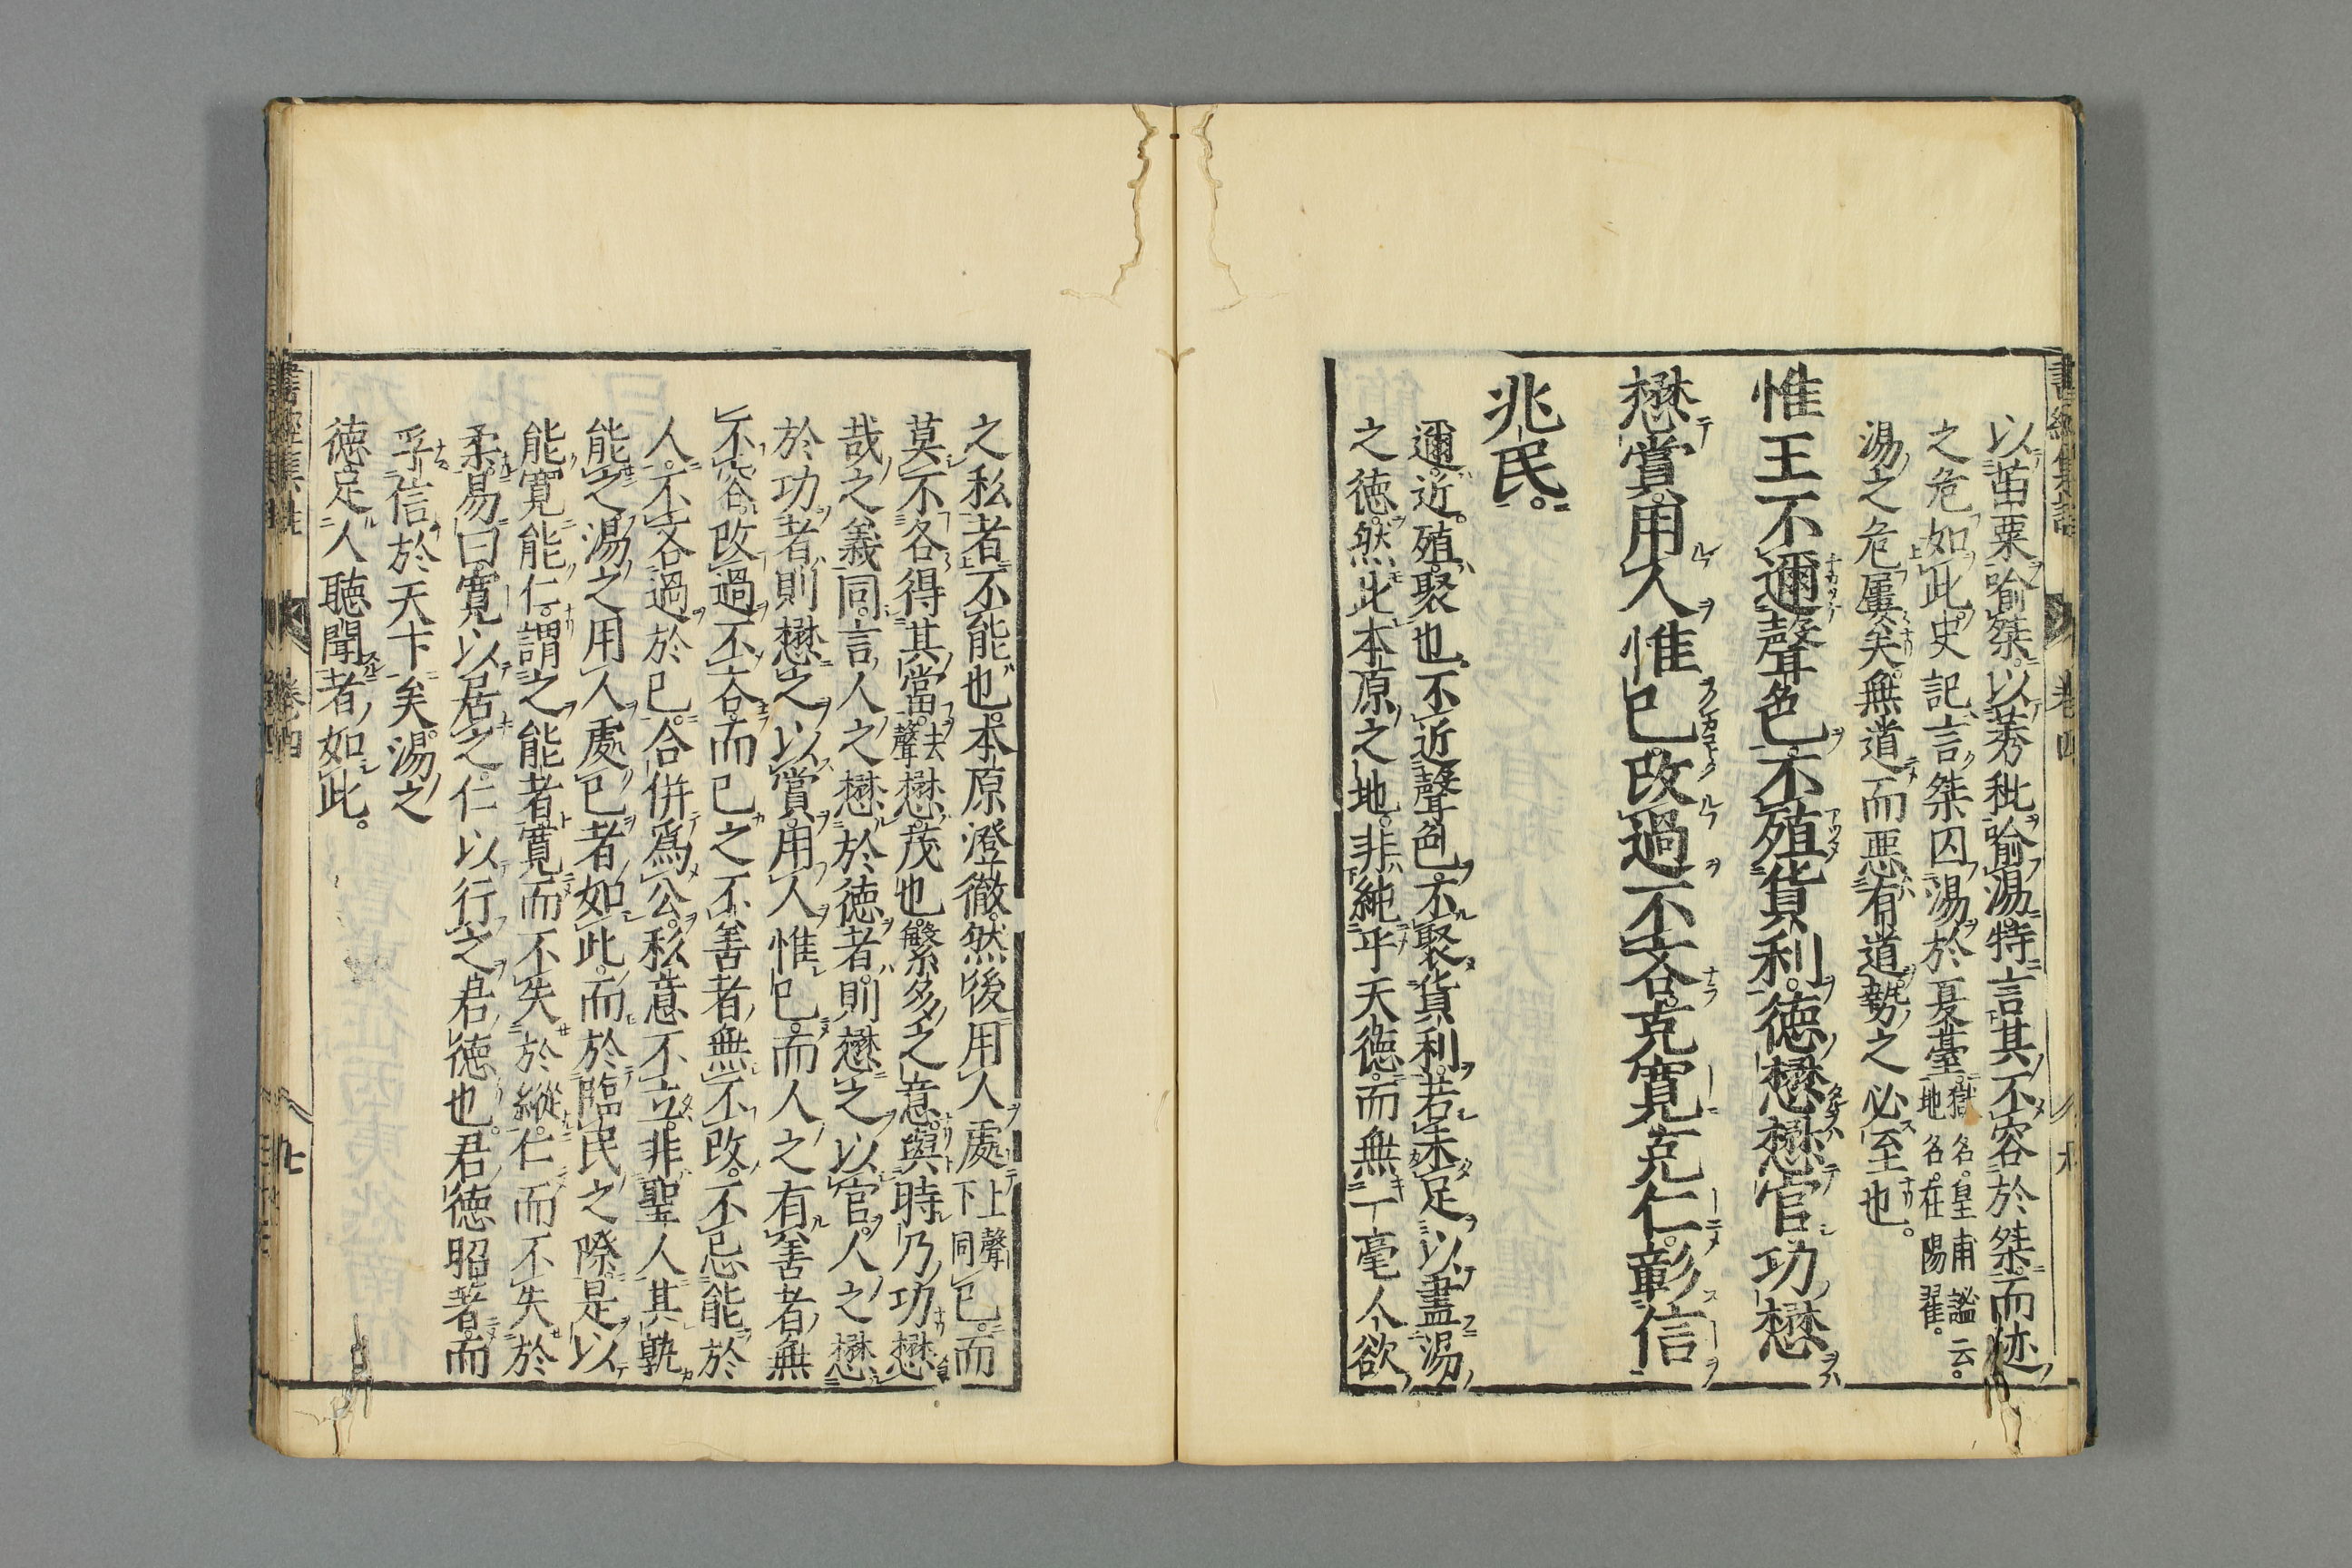 以苗粟喻桀以莠秕喻湯特言其不容於桀而迹
之危如此史記言桀囚湯於夏臺獄名皇甫謐云地名在陽翟
湯之危屢矣無道而悪有道勢之必至也
惟王不邇聲色不殖貨利徳懋懋官功懋
懋賞用人惟已改過不吝克寛克仁彰信
兆民
邇近殖聚也不近聲色不聚貨利若未足以盡湯
之徳然此本原之地非純乎天徳而無一毫人欲
之私者不能也本原澄徹然後用人處上聲下同已而
莫不各得其當去聲懋茂也繁多之意與時乃功懋
哉之義同言人之懋於徳者則懋之以官人之懋
於功者則懋之以賞用人惟已而人之有善者無
不容改過不吝而已之不善者無不改不忌能於
人不吝過於已合併爲公私意不立非聖人其孰
能之湯之用人處已者如此而於臨民之際是以
能寛能仁謂之能者寛而不失於縦仁而不失於
柔易曰寛以居之仁以行之君徳也君徳昭著而
孚信於天下矣湯之
徳足人聽聞者如此
書經集註 卷四